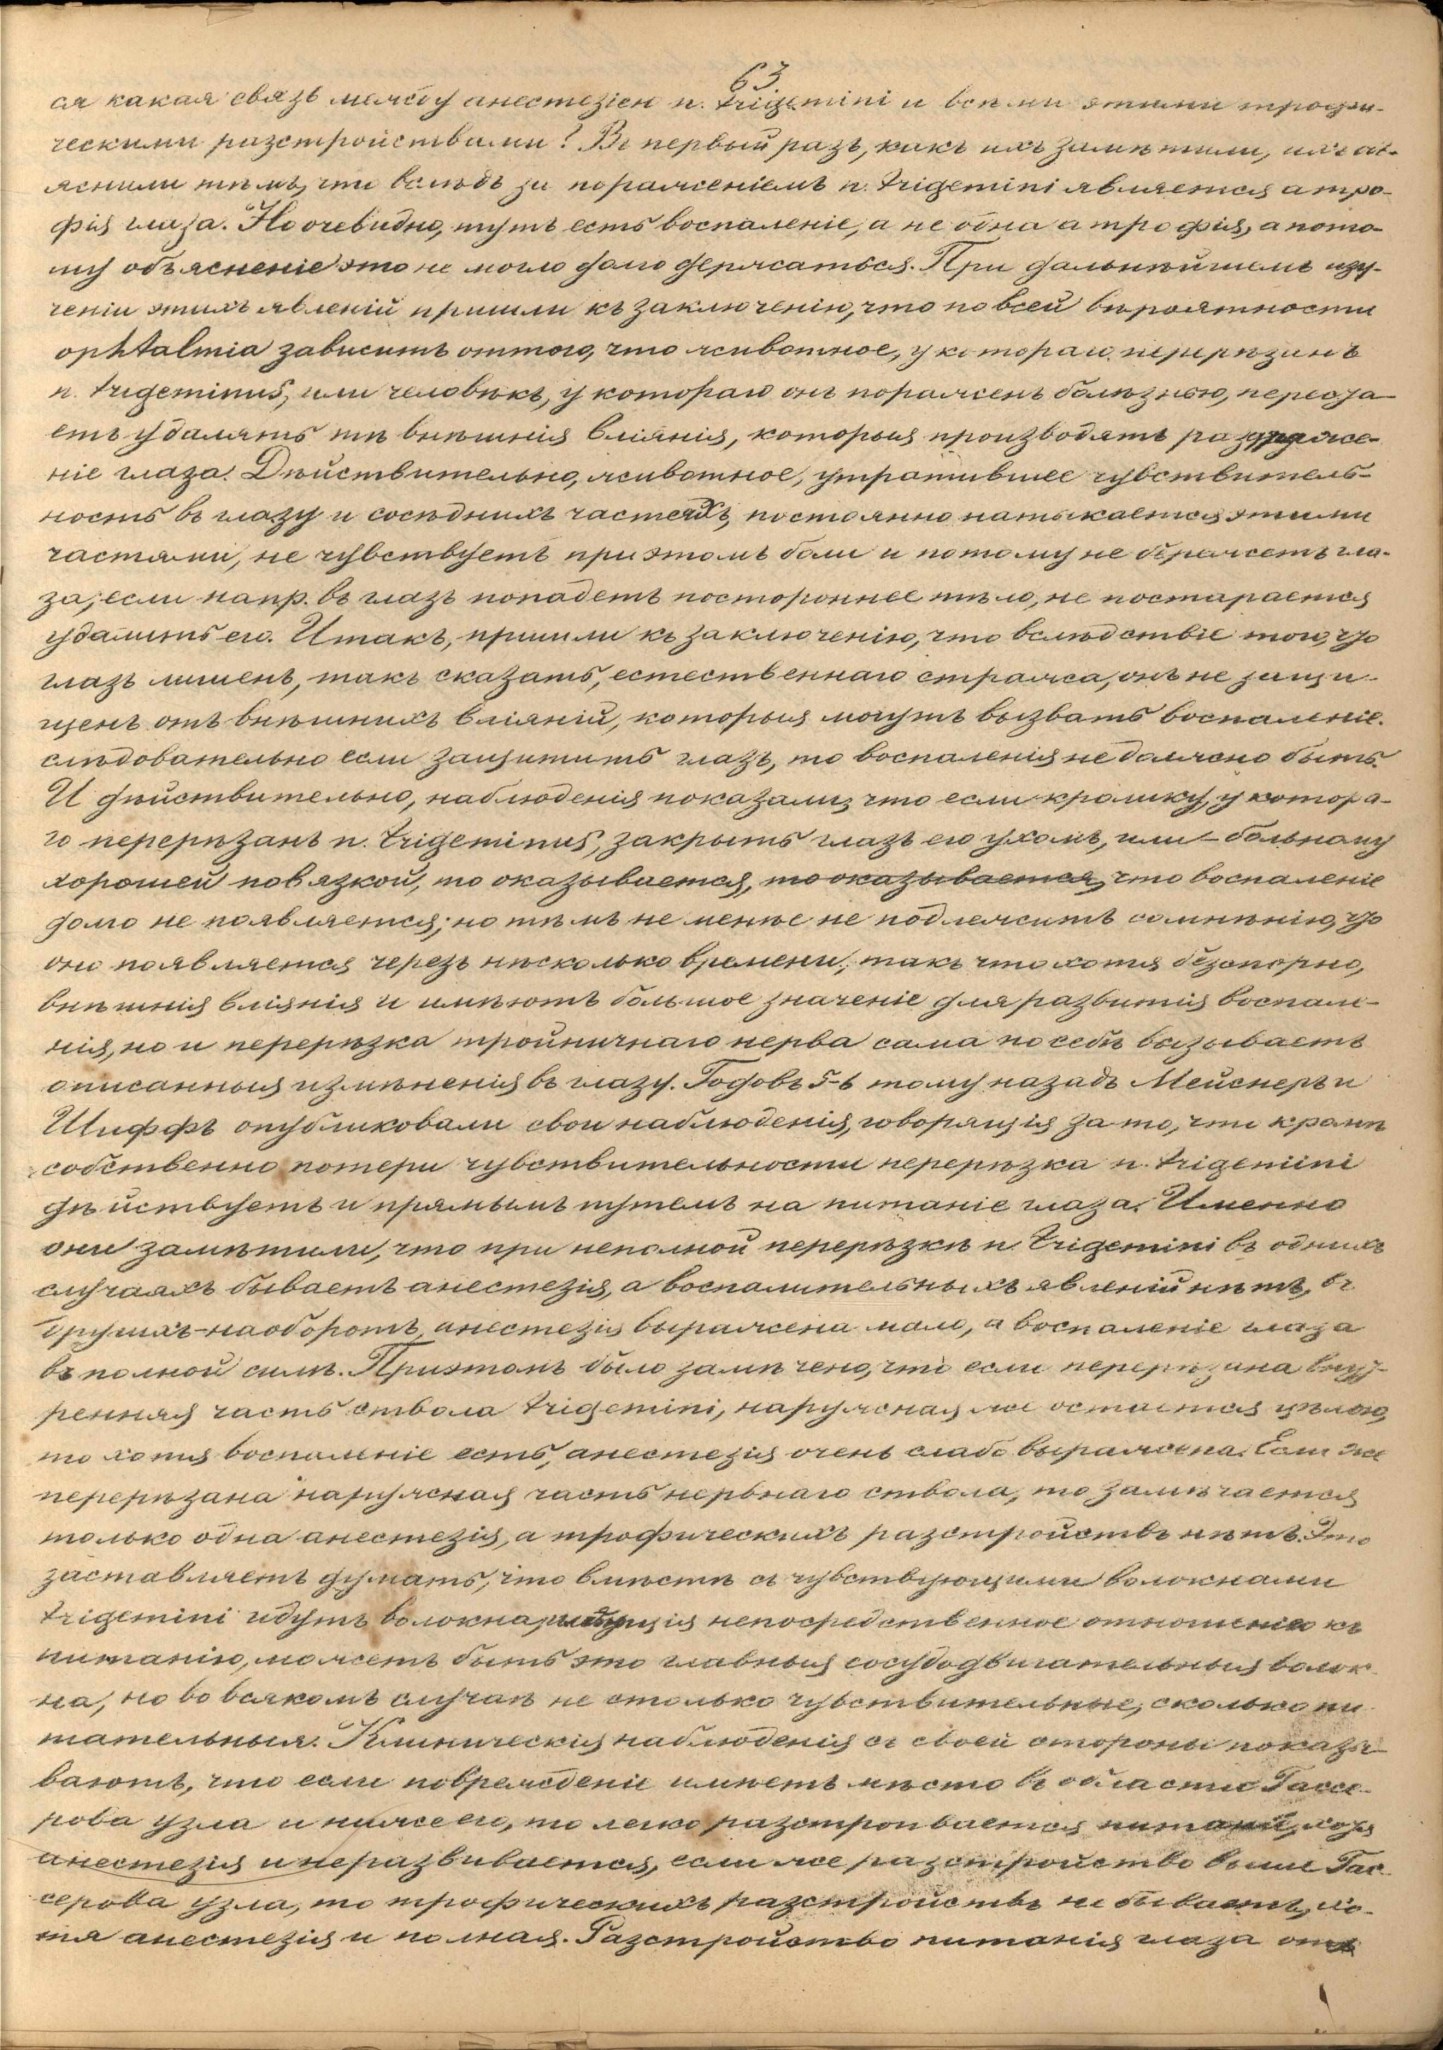 63
ся какая связь между анестезіею n. trigemini и всѣми этими трофи-
ческими разстройствами? Въ первый разъ, какъ ихъ замѣтили, ихъ объ-
яснили тѣмъ, что вслѣдъ за пораженіемъ n. trigemini является атро-
фія глаза. Но очевидно, тутъ есть воспаленіе, а не одна атрофія, а пото-
му объясненіе это не могло долго держаться. При дальнѣйшемъ изу-
ченіи этихъ явленій пришли къ заключенію, что по всей вѣроятности
ophtalmia зависитъ оттого, что животное, у котораго перерѣзанъ
n. trigeminus, или человѣкъ, у котораго онъ пораженъ болѣзнью, переста-
етъ удалять тѣ внѣшнія вліянія, которыя производятъ раздраже-
ніе глаза. Дѣйствительно, животное, утратившее чувствитель-
ность въ глазу и сосѣднихъ частяхъ, постоянно натыкается этими
частями, не чувствуетъ при этомъ боли и потому не бережетъ гла-
за; если напр. въ глазъ попадетъ постороннее тѣло, не постарается
удалить его. Итакъ, пришли къ заключенію, что вслѣдствіе того, что
глазъ лишенъ, такъ сказать, естественнаго стража, онъ не защи-
щенъ отъ внѣшнихъ вліяній, которыя могутъ вызвать воспаленіе.
слѣдовательно если защитить глазъ, то воспаленія не должно быть.
И дѣйствительно, наблюденія показали, что если кролику, у котора-
го перерѣзанъ n. trigeminus, закрыть глазъ его ухомъ, или – больному
хорошей повязкой, то оказывается, то оказывается, что воспаленіе
долго не появляется; но тѣмъ не менѣе не подлежитъ сомнѣнію, что
оно появляется черезъ нѣсколько времени, такъ что хотя безспорно,
внѣшнія вліянія и имѣютъ большое значеніе для развитія воспале-
нія, но и перерѣзка тройничнаго нерва сама по себѣ вызываетъ
описанныя измѣненія въ глазу. Годовъ 5-6 тому назадъ Мейснеръ и
Шиффъ опубликовали свои наблюденія, говорящія за то, что кромѣ
собственно потери чувствительности перерѣзка n. trigemini
дѣйствуетъ и прямымъ путемъ на питаніе глаза. Именно
они замѣтили, что при неполной перерѣзкѣ n. trigemini въ однихъ
случаяхъ бываетъ анестезія, а воспалительныхъ явленій нѣтъ, въ
другихъ – наоборотъ, анестезія выражена мало, а воспаленіе глаза
въ полной силѣ. При этомъ было замѣчено, что если перерѣзана внут-
ренняя часть ствола trigemini, наружная же остается цѣлою,
то хотя воспаленіе есть, анестезія очень слабо выражена. Если же
перерѣзана наружная часть нервнаго ствола, то замѣчается
только одна анестезія, а трофическихъ разстройствъ нѣтъ. Это
заставляетъ думать, что вмѣстѣ съ чувствующими волокнами
trigemini идутъ волокна, имѣющія непосредственное отношеніе къ
питанію, можетъ быть это главныя сосудодвигательныя волок-
на, но во всякомъ случаѣ не столько чувствительные, сколько пи-
тательныя. Клиническія наблюденія съ своей стороны показы-
ваютъ, что если поврежденіе имѣетъ мѣсто въ области Гассе-
рова узла и ниже его, то легко разстроивается питаніе, хотя
анестезія и не развивается, если же разстройство выше Гас-
серова узла, то трофическихъ разстройствъ не бываетъ, хо-
тя анестезія и полная. Разстройство питанія глаза отъ